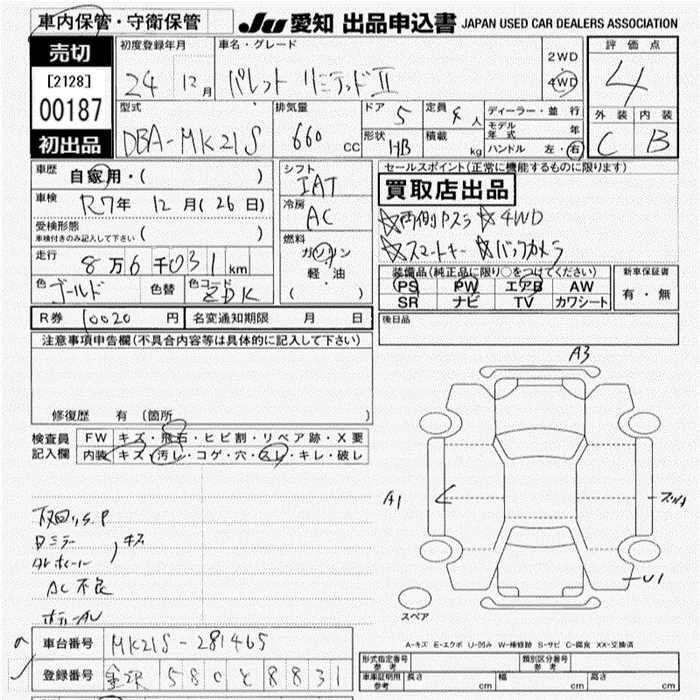 車内保管・守衛保管
JU 愛知 出品申込書 JAPAN USED CAR DEALERS ASSOCIATION
売切
[2128]
00187
初出品
初度登録年月
24 12 月
車名・グレード
パレット リミテッドII
2WD
4WD
評価点
4
外装 内装
C B
型式
DBA-MK21S
排気量
660 cc
ドア 5
定員 4 人
形状 HB
積載 kg
ディーラー・並行
モデル年式 年
ハンドル 左・右
車歴 自家用・( )
車検 R7年 12月(26日)
受検形態
車検付きのみ記入して下さい ( )
走行 8万6千031km
色 ゴールド 色替 色コード ZDK
シフト
IAT
冷房
AC
燃料
ガソリン
軽・油
( )
セールスポイント(正常に機能するものに限ります)
買取店出品
☆両側Pスラ ☆4WD
☆スマートキー ☆バックカメラ
装備品(純正品に限り○をつけてください)
PS PW エアB AW
SR ナビ TV カワシート
新車保証書
有・無
R券 10020 円 名変通知期限 月 日
後日品
注意事項申告欄(不具合内容等は具体的に記入して下さい)
修復歴 有 (箇所 )
検査員記入欄
FW キズ・飛石・ヒビ割・リペア跡・X要
内装 キズ・汚レ・コゲ・穴・スレ・キレ・破レ
A3
A1
U1
キズ
AC不良
スペア
車台番号 MK21S-281465
登録番号 金沢 580 と 8831
A-キズ E-エクボ U-凹み W-補修跡 S-サビ C-腐食 XX-交換済
形式指定番号 参考
類別区分番号 参考
車庫証明用 参考 長さ cm 幅 cm 高さ cm